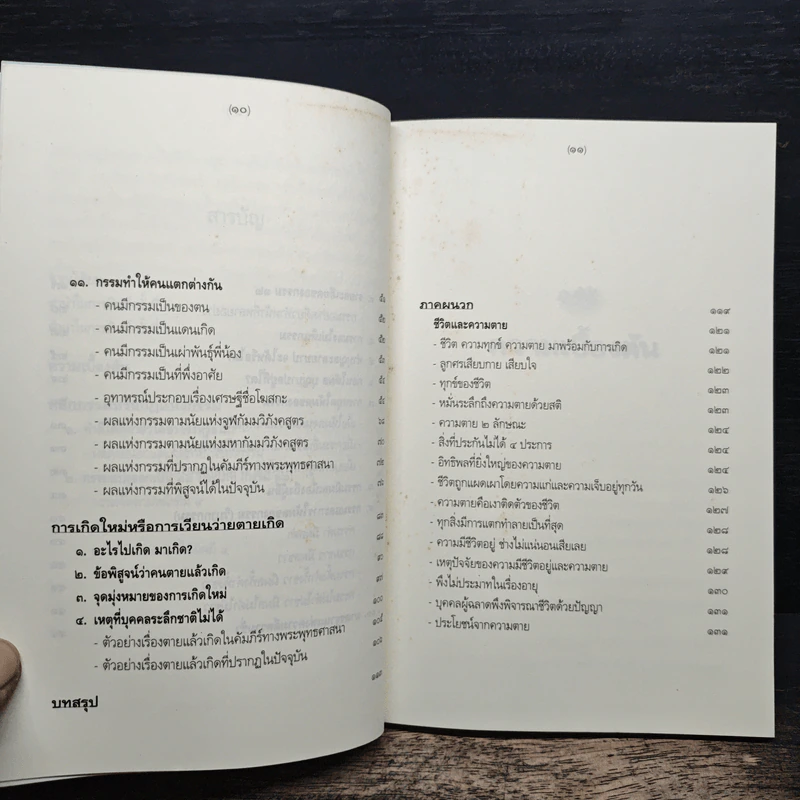 (๑๐)
๑๑. กรรมทำให้คนแตกต่างกัน
- คนมีกรรมเป็นของตน
- คนมีกรรมเป็นแดนเกิด
- คนมีกรรมเป็นเผ่าพันธุ์พี่น้อง
- คนมีกรรมเป็นที่พึ่งอาศัย
- อุทาหรณ์ประกอบเรื่องเศรษฐีชื่อโฆสกะ
- ผลแห่งกรรมตามนัยแห่งจูฬกัมมวิภังคสูตร
- ผลแห่งกรรมตามนัยแห่งมหากัมมวิภังคสูตร
- ผลแห่งกรรมที่ปรากฏในคัมภีร์ทางพระพุทธศาสนา
- ผลแห่งกรรมที่พิสูจน์ได้ในปัจจุบัน
การเกิดใหม่หรือการเวียนว่ายตายเกิด
๑. อะไรไปเกิด มาเกิด?
๒. ข้อพิสูจน์ว่าคนตายแล้วเกิด
๓. จุดมุ่งหมายของการเกิดใหม่
๔. เหตุที่บุคคลระลึกชาติไม่ได้
- ตัวอย่างเรื่องตายแล้วเกิดในคัมภีร์ทางพระพุทธศาสนา
- ตัวอย่างเรื่องตายแล้วเกิดที่ปรากฏในปัจจุบัน
บทสรุป
(๑๑)
ภาคผนวก ๑๑๙
ชีวิตและความตาย ๑๒๑
- ชีวิต ความทุกข์ ความตาย มาพร้อมกับการเกิด ๑๒๑
- ลูกศรเสียบกาย เสียบใจ ๑๒๒
- ทุกข์ของชีวิต ๑๒๓
- หมั่นระลึกถึงความตายด้วยสติ ๑๒๓
- ความตาย ๒ ลักษณะ ๑๒๔
- สิ่งที่ประกันไม่ได้ ๔ ประการ ๑๒๔
- อิทธิพลที่ยิ่งใหญ่ของความตาย ๑๒๔
- ชีวิตถูกแผดเผาโดยความแก่และความเจ็บอยู่ทุกวัน ๑๒๖
- ความตายคือเงาติดตัวของชีวิต ๑๒๗
- ทุกสิ่งมีการแตกทำลายเป็นที่สุด ๑๒๘
- ความมีชีวิตอยู่ ช่างไม่แน่นอนเสียเลย ๑๒๘
- เหตุปัจจัยของความมีชีวิตอยู่และความตาย ๑๒๙
- พึงไม่ประมาทในเรื่องอายุ ๑๓๐
- บุคคลผู้ฉลาดพึงพิจารณาชีวิตด้วยปัญญา ๑๓๑
- ประโยชน์จากความตาย ๑๓๑